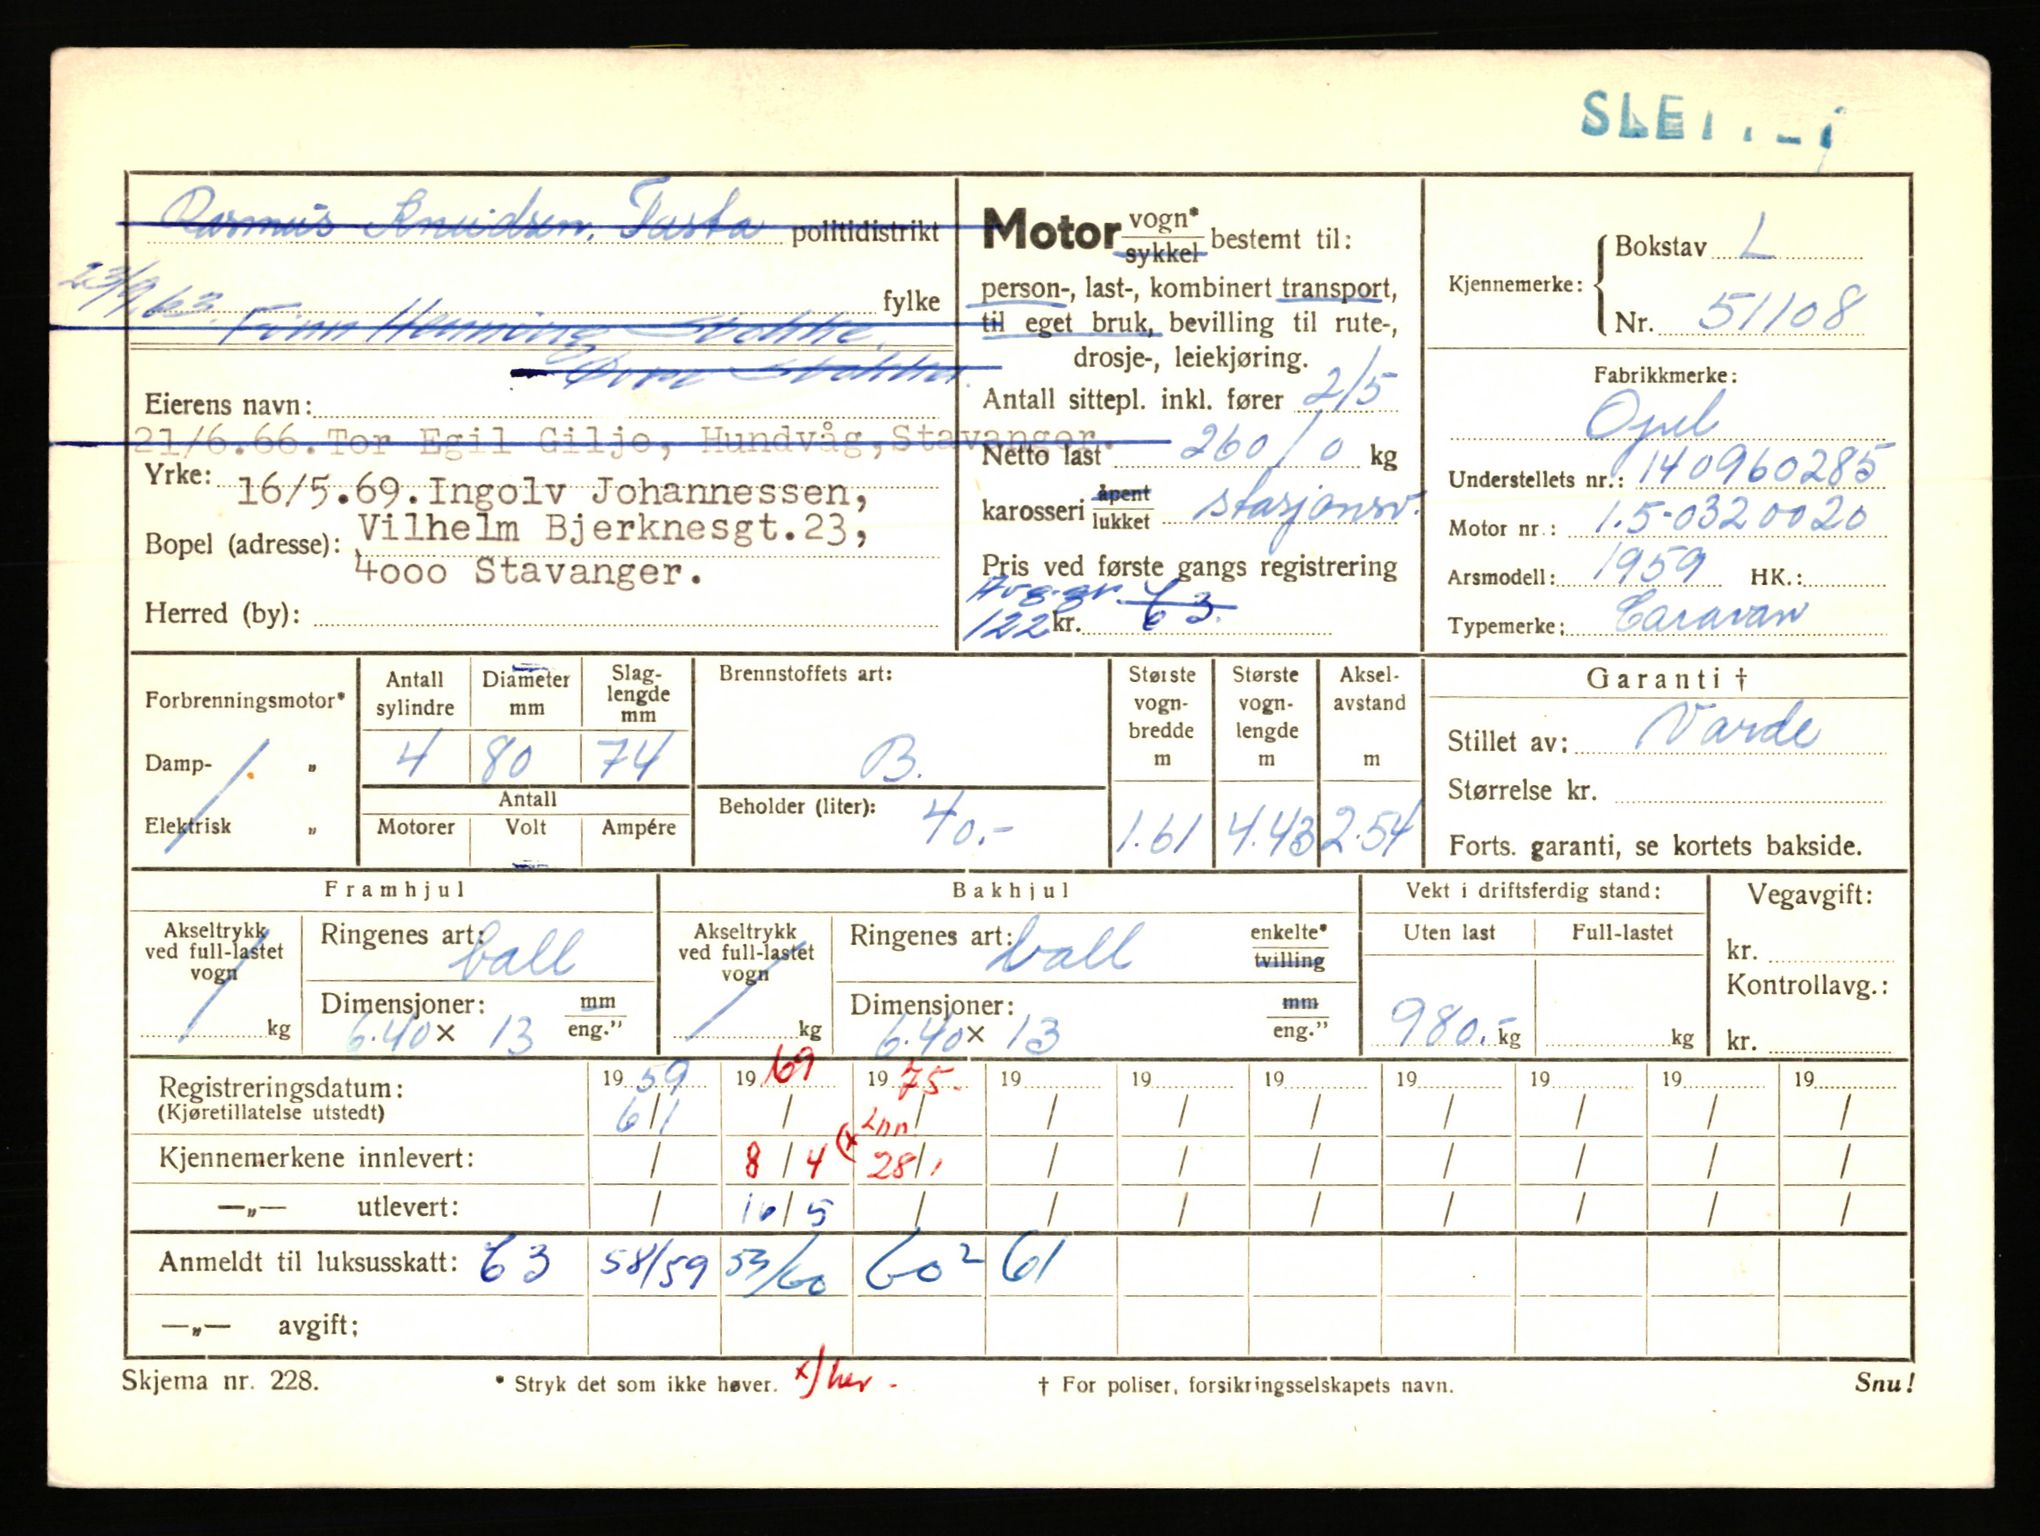 SLE
Rasmus Knudsen, Tasta politidistrikt
23/9.63. fylke
Finn Henning
Eierens navn:
21/6.66. Tor Egil Gilje, Hundvåg, Stavanger.
Yrke:
16/5.69. Ingolv Johannessen,
Bopel (adresse): Vilhelm Bjerknesgt.23,
4000 Stavanger.
Herred (by):
Motor vogn* sykkel bestemt til:
person-, last-, kombinert transport,
til eget bruk, bevilling til rute-,
drosje-, leiekjøring.
Antall sittepl. inkl. fører 2/5
Netto last 260/0 kg
karosseri åpent lukket stasjonsv.
Pris ved første gangs registrering
Avg.gr. 63.
122 kr.
Kjennemerke: Bokstav L
Nr. 51108
Fabrikkmerke:
Opel
Understellets nr.: 140960285
Motor nr.: 1.5-0320020
Arsmodell: 1959 HK.:
Typemerke: Caravan
Forbrenningsmotor*
Damp- „
Elektrisk „
Antall sylindre 4
Diameter mm 80
Slaglengde mm 74
Antall
Motorer Volt Ampére
Brennstoffets art:
B.
Beholder (liter): 40.-
Største vognbredde m 1.61
Største vognlengde m 4.43
Akselavstand m 2.54
Garanti †
Stillet av: Varde
Størrelse kr.
Forts. garanti, se kortets bakside.
Framhjul
Akseltrykk ved full-lastet vogn kg
Ringenes art: ball
Dimensjoner: mm eng.”
6.40 x 13
Bakhjul
Akseltrykk ved full-lastet vogn kg
Ringenes art: ball enkelte* tvilling
Dimensjoner: mm eng.”
6.40 x 13
Vekt i driftsferdig stand:
Uten last Full-lastet
980.- kg kg
Vegavgift:
kr.
Kontrollavg.:
kr.
Registreringsdatum: 19 59 19 69 19 75. 19 19 19 19 19 19 19
(Kjøretillatelse utstedt) 6/1 / / / / / / / / /
Kjennemerkene innlevert: / 8/4 (x 28/1 / / / / / / /
—„— utlevert: / 16/5 / / / / / / / /
Anmeldt til luksusskatt: 63 58/59 59/60 60² 61
—„— avgift:
Skjema nr. 228. * Stryk det som ikke høver. x) her. † For poliser, forsikringsselskapets navn. Snu!